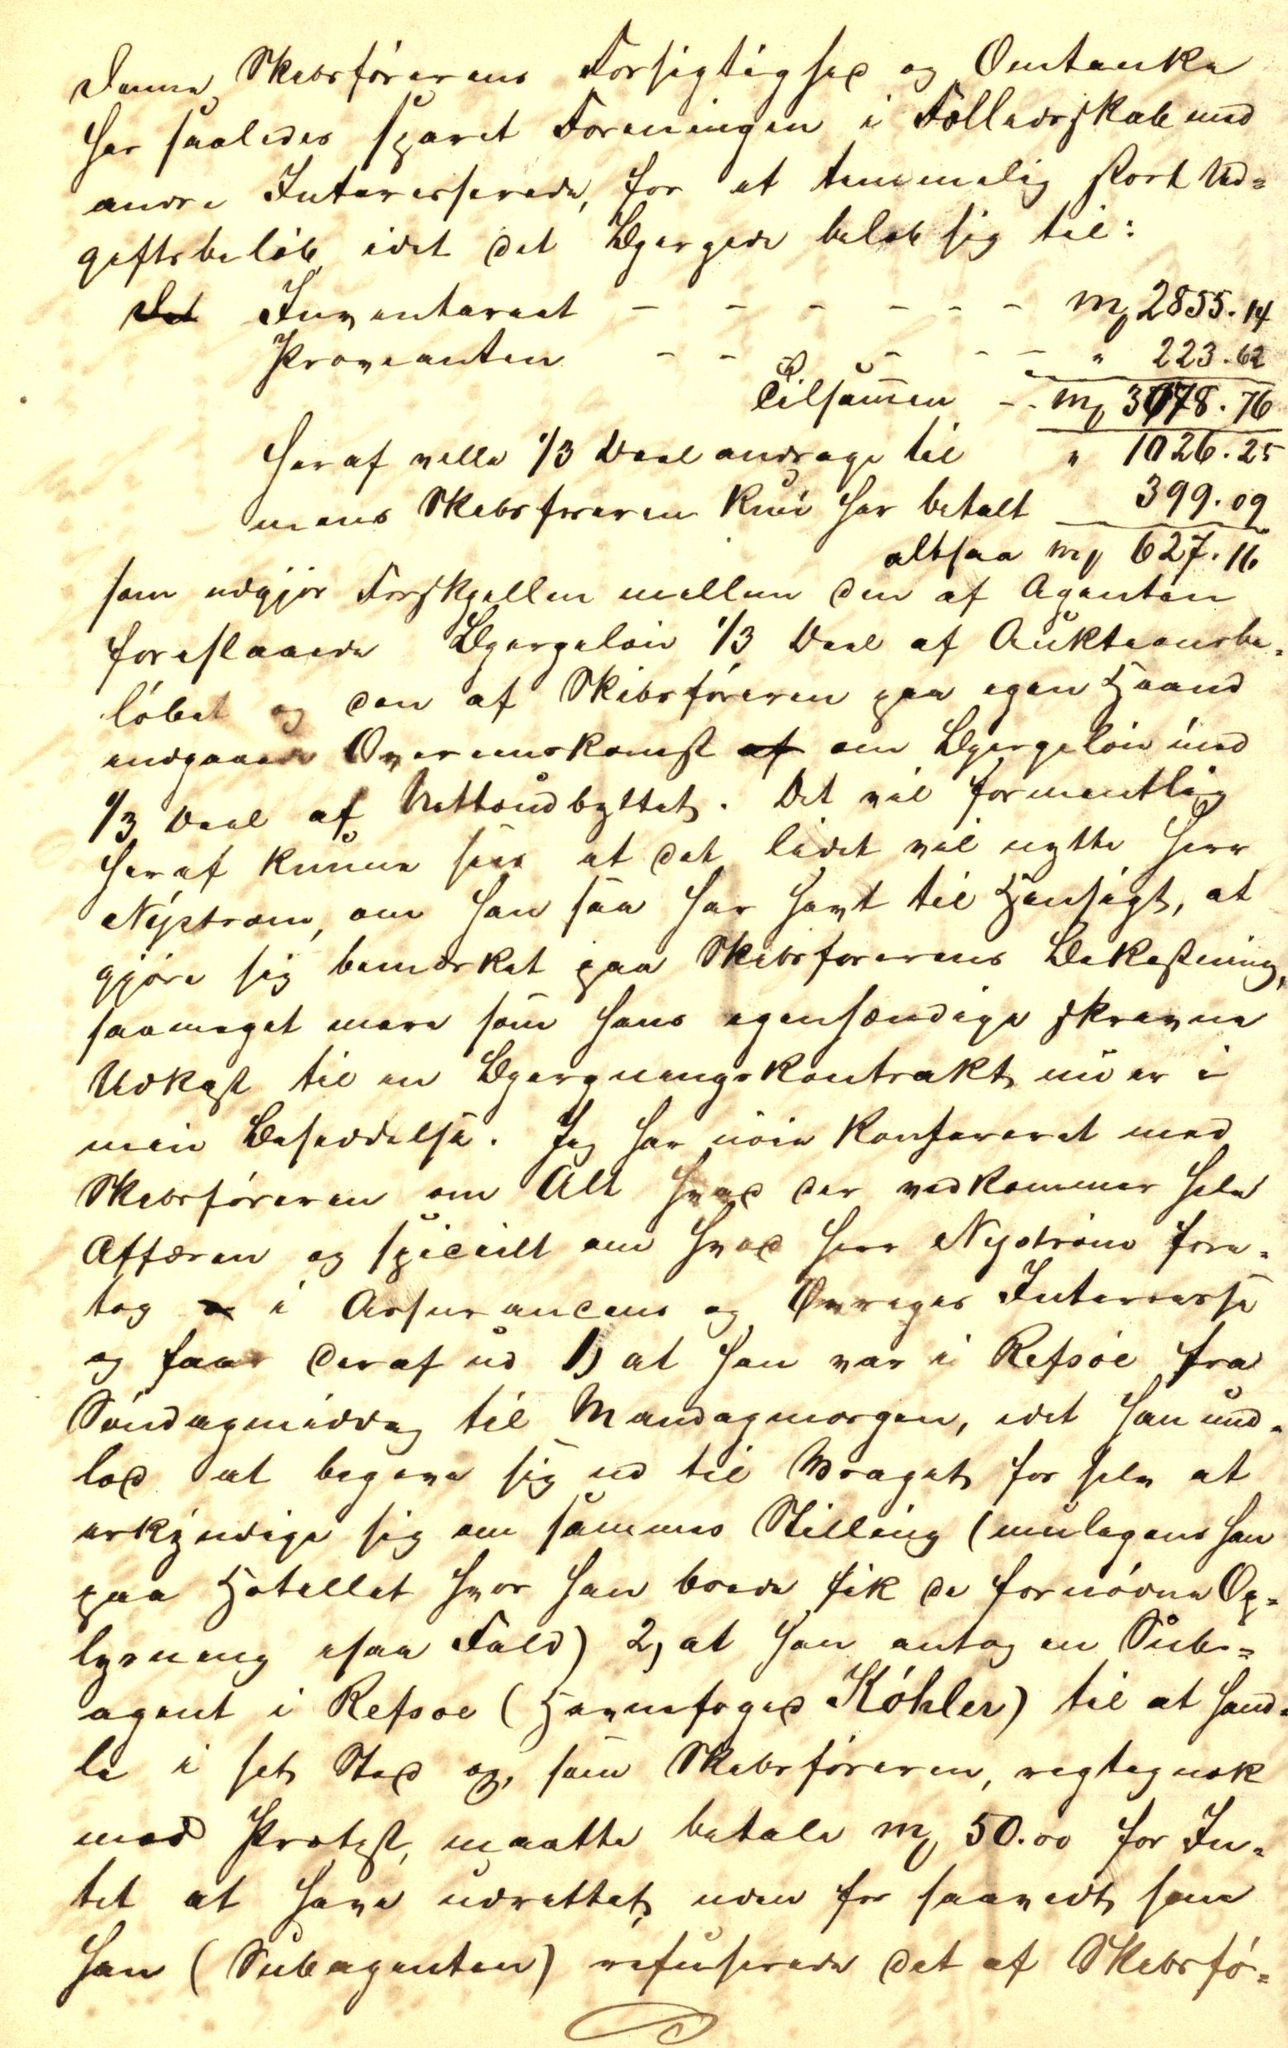 Denne Skibsförerens Forsigtighed og Omtanke
har saaledes sparet Foreningen i Fælledsskab med
andre Interesserede, for et temmelig stort Ud=
giftsbeløb, idet det Bjergede beløb sig til:
Det Inventariet - - - - - - - M 2855.14
Provianten - - - - - - " 223.62
Tilsammen - - M 3078.76
heraf ville 1/3 Deel andrage til " 1026.25
mens Skibsföreren kun har betalt 399.09
altsaa M 627.16
som udgjör Forskjellen mellem den af Agenten
foreslaaede Bjergelön 1/3 Deel af Auktionsbe-
löbet og den af Skibsföreren paa egen Haand
indgaaede Overenskomst af om Bjergelön med
1/3 Deel af Nettoudbyttet. Det vil formentlig
heraf kunne sees at det lidet vil nytte Herr
Nyström, om han saa har havt til Hensigt, at
gjöre sig bemærket paa Skibsförerens Bekostning,
saameget mere som hans egenhændige skrevne
Udkast til en Bjergningskontrakt nu er i
min Besiddelse. Jeg har nöie konfereret med
Skibsföreren om Alt hvad der vedkommer hele
Affæren og specielt om hvad Herr Nyström fore-
tog i Assurancens og Övriges Interesse
og faar deraf ud 1) at han var i Refsöe fra
Söndagmiddag til Mandagmorgen, idet han und-
lod at begive sig ud til Vraget for selv at
erkyndige sig om sammes Stilling (muligens han
paa Hotellet hvor han boede fik de fornödne Op-
lysning isaa Fald) 2) at han antog en Sub-
agent i Refsöe (Havnefoged Köhler) til at hand-
le i sit Sted og, som Skibsföreren, rigtignok
med Protest, maatte betale M 50.00 for In-
tet at have udrettet, uden for saavidt som
han (Subagenten) refuserede det af Skibsfö-